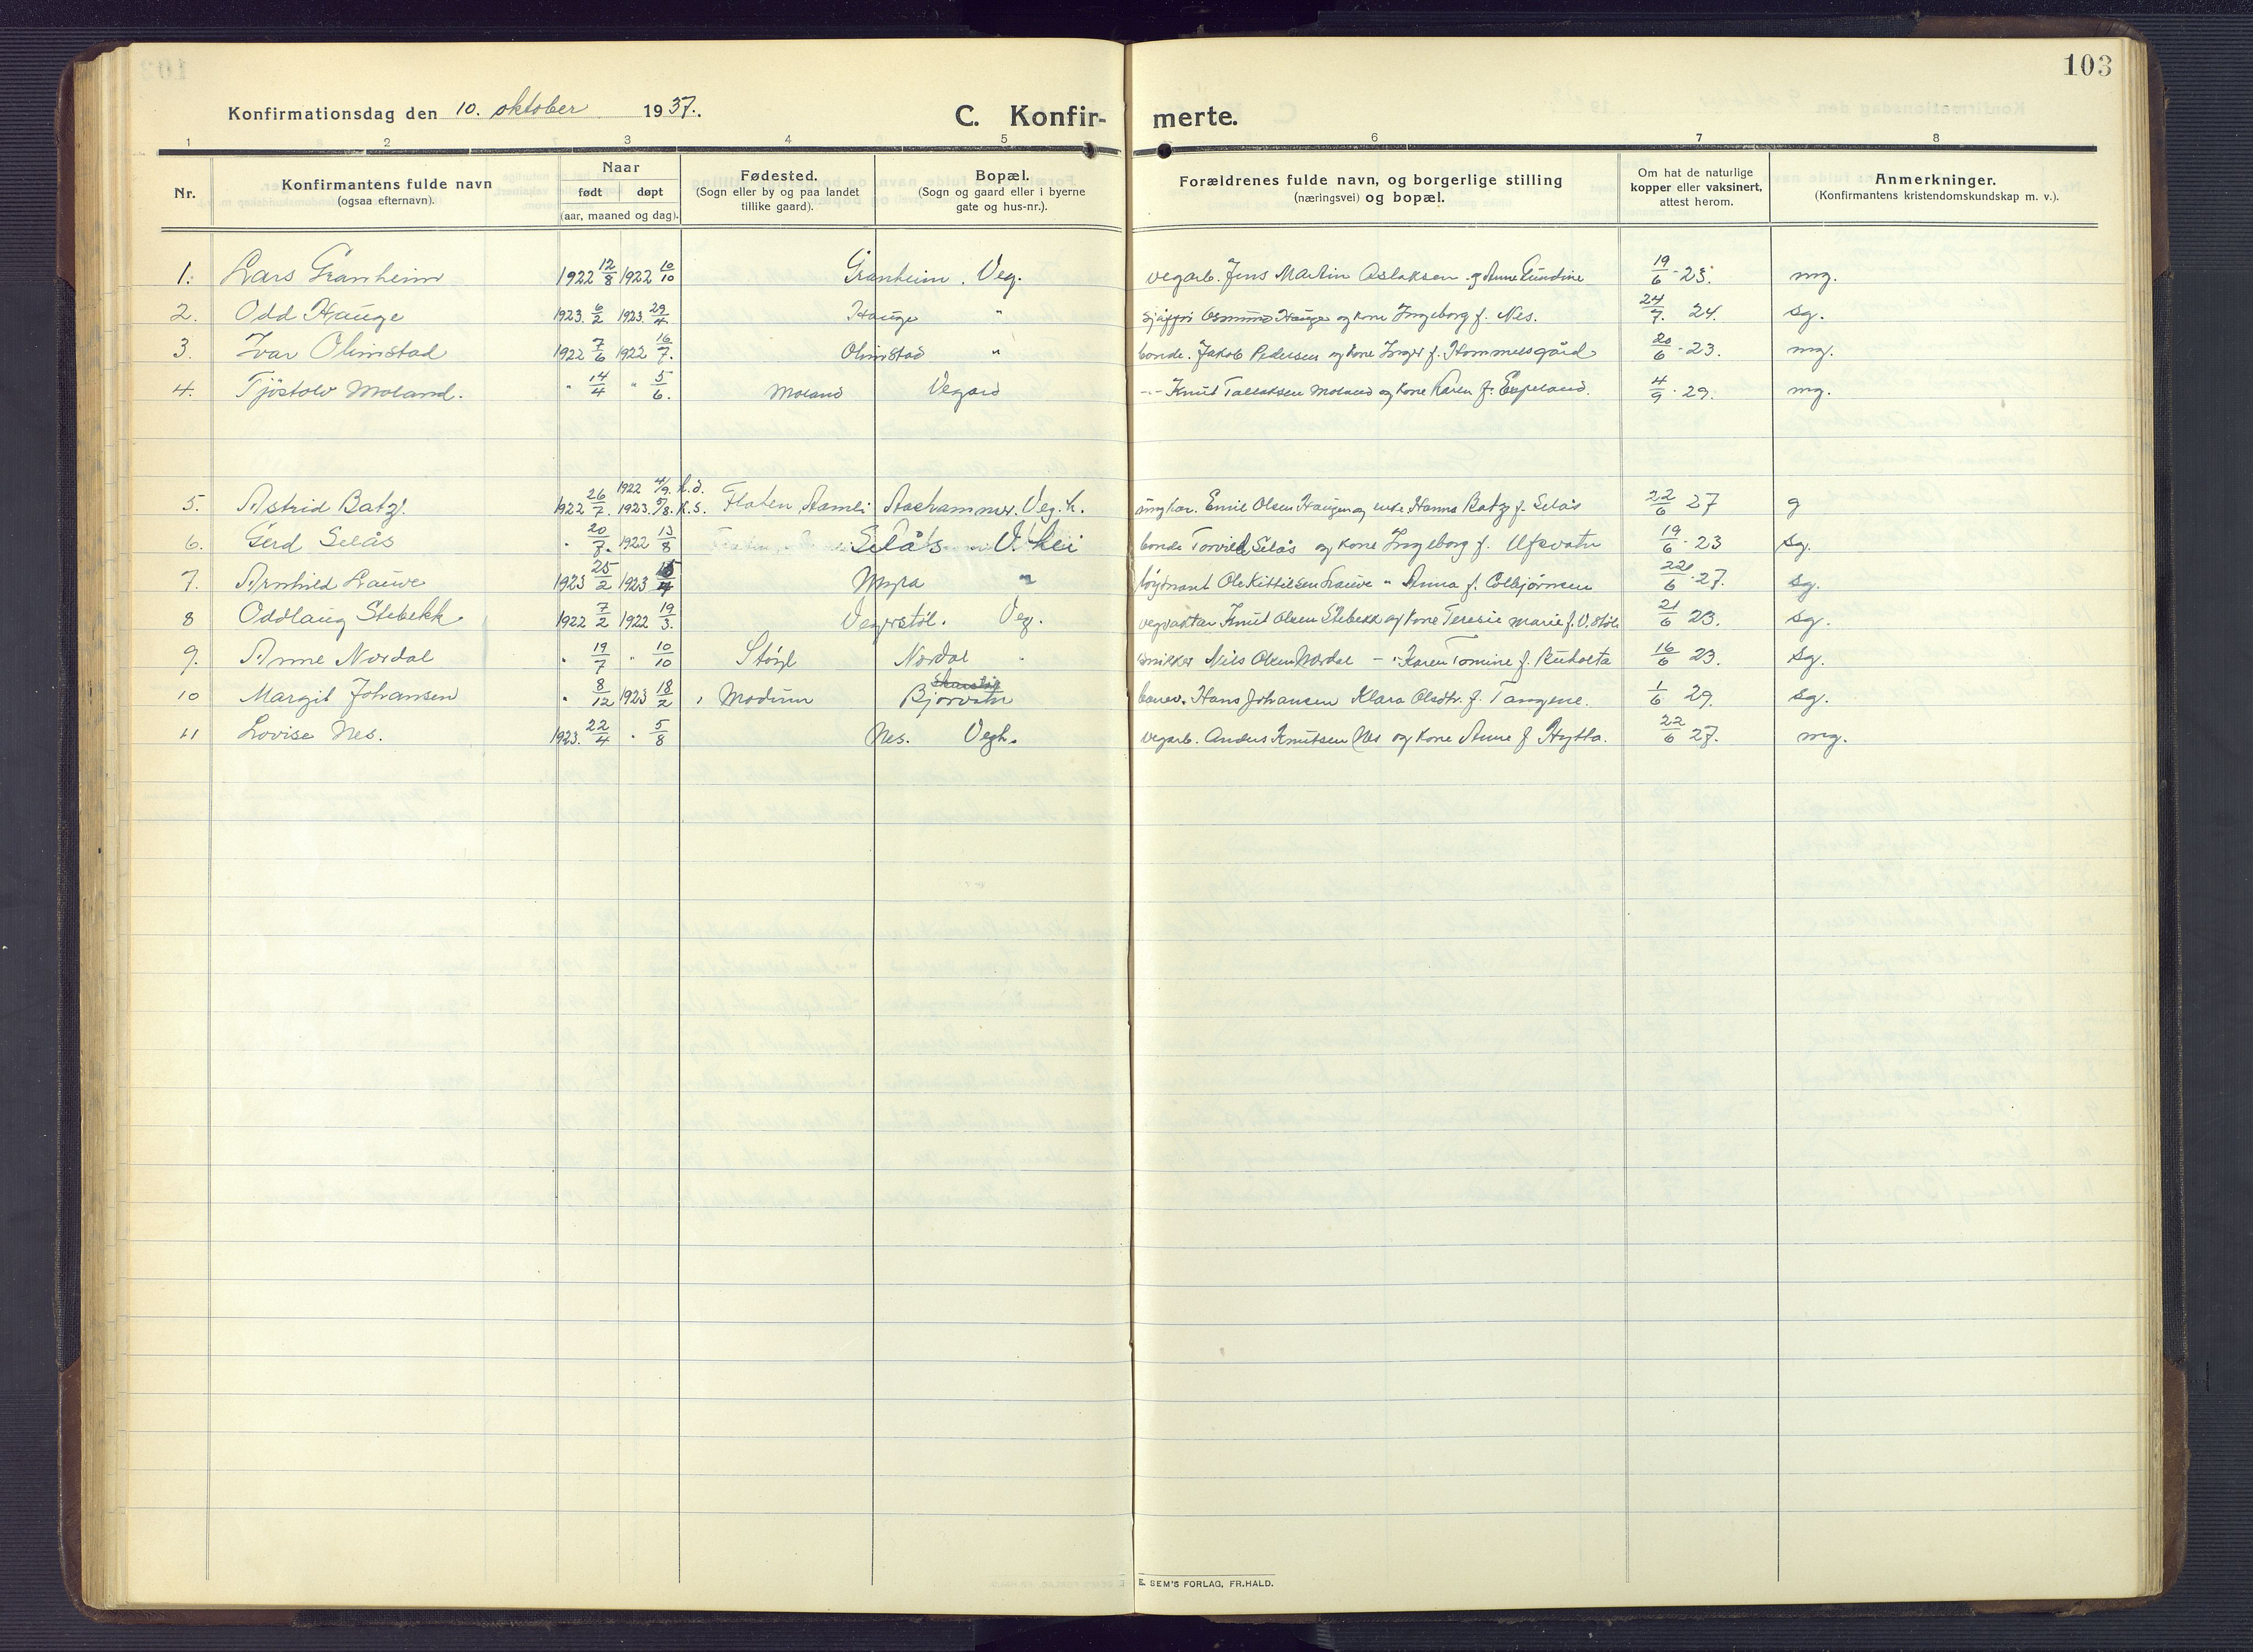 103
Konfirmationsdag den 10. oktober 1937.
C. Konfir- merte.
1 2 3 4 5 6 7 8
Nr. Konfirmantens fulde navn (ogsaa efternavn). Naar født døpt (aar, maaned og dag). Fødested. (Sogn eller by og paa landet tillike gaard). Bopæl. (Sogn og gaard eller i byerne gate og hus-nr.). Forældrenes fulde navn, og borgerlige stilling (næringsvei) og bopæl. Om hat de naturlige kopper eller vaksinert, attest herom. Anmerkninger. (Konfirmantens kristendomskundskap m. v.).
1. Lars Granheim 1922 12/8 1922 10/10 Granheim. Veg. vegarb. Jens Martin Aslaksen og Anne Gundine 19/6 - 23. mg.
2. Odd Hauge 1923. 6/2 1923. 29/4 Hauge " sjåffør Osmund Hauge og kone Ingeborg f. Nes. 24/7. 24. sg.
3. Ivar Olimstad 1922 7/6 1922 16/7. Olimstad " bonde. Jakob Pedersen og kone Inger f. Hommelsgård 20/6 - 23. mg.
4. Tjöstolv Moland. " 14/4 " 5/6. Moland Vegard -"- Knut Tallaksen Moland og kone Karen f. Espeland. 4/9 - 29. mg.
5. Astrid Batz. 1922 26/7. 1922 4/9. h.d. 1923. 5/8. K.S. Flaten Aamli Aashammer. Veg. h. ungkar. Emil Olsen Haugen og enke Hanna Batz f. Selås 22/6 27 g
6. Gerd Selås " 20/7. 1922 13/8 Selås V. hei bonde Torvild Selås og kone Ingeborg f. Ufsvatn 19/6 - 23 sg.
7. Arnhild Lauve 1923 25/2 1923 Myra " Ole Kittilsen Lauve " Anna f. Colbjørnsen 22/6 - 27. sg.
8 Oddlaug Stebekk 1922 7/2 1922 19/3. Vegerstøl. Veg. vegvakter Knut Olsen Stebekk og kone Teresie Marie f. V.støl 21/6 23. sg.
9. Anne Nordal " 19/7 " 10/10 Nordal " snikker Niels Olsen Nordal - " - Karen Tomine f. 16/6 23. sg.
10 Margit Johansen " 8/12 1923 18/2 , Modum Bjorvatn Hans Johansen Klara Olsdtr. f. Tangene. 1/6 29. sg.
11 Lovise Nes. 1923. 22/4 " 5/8 Nes. Vegh. vegarb. Anders Knutsen Nes og kone Anne f Hytta. 22/6 27. mg.
E. SEM'S FORLAG, FR.HALD.